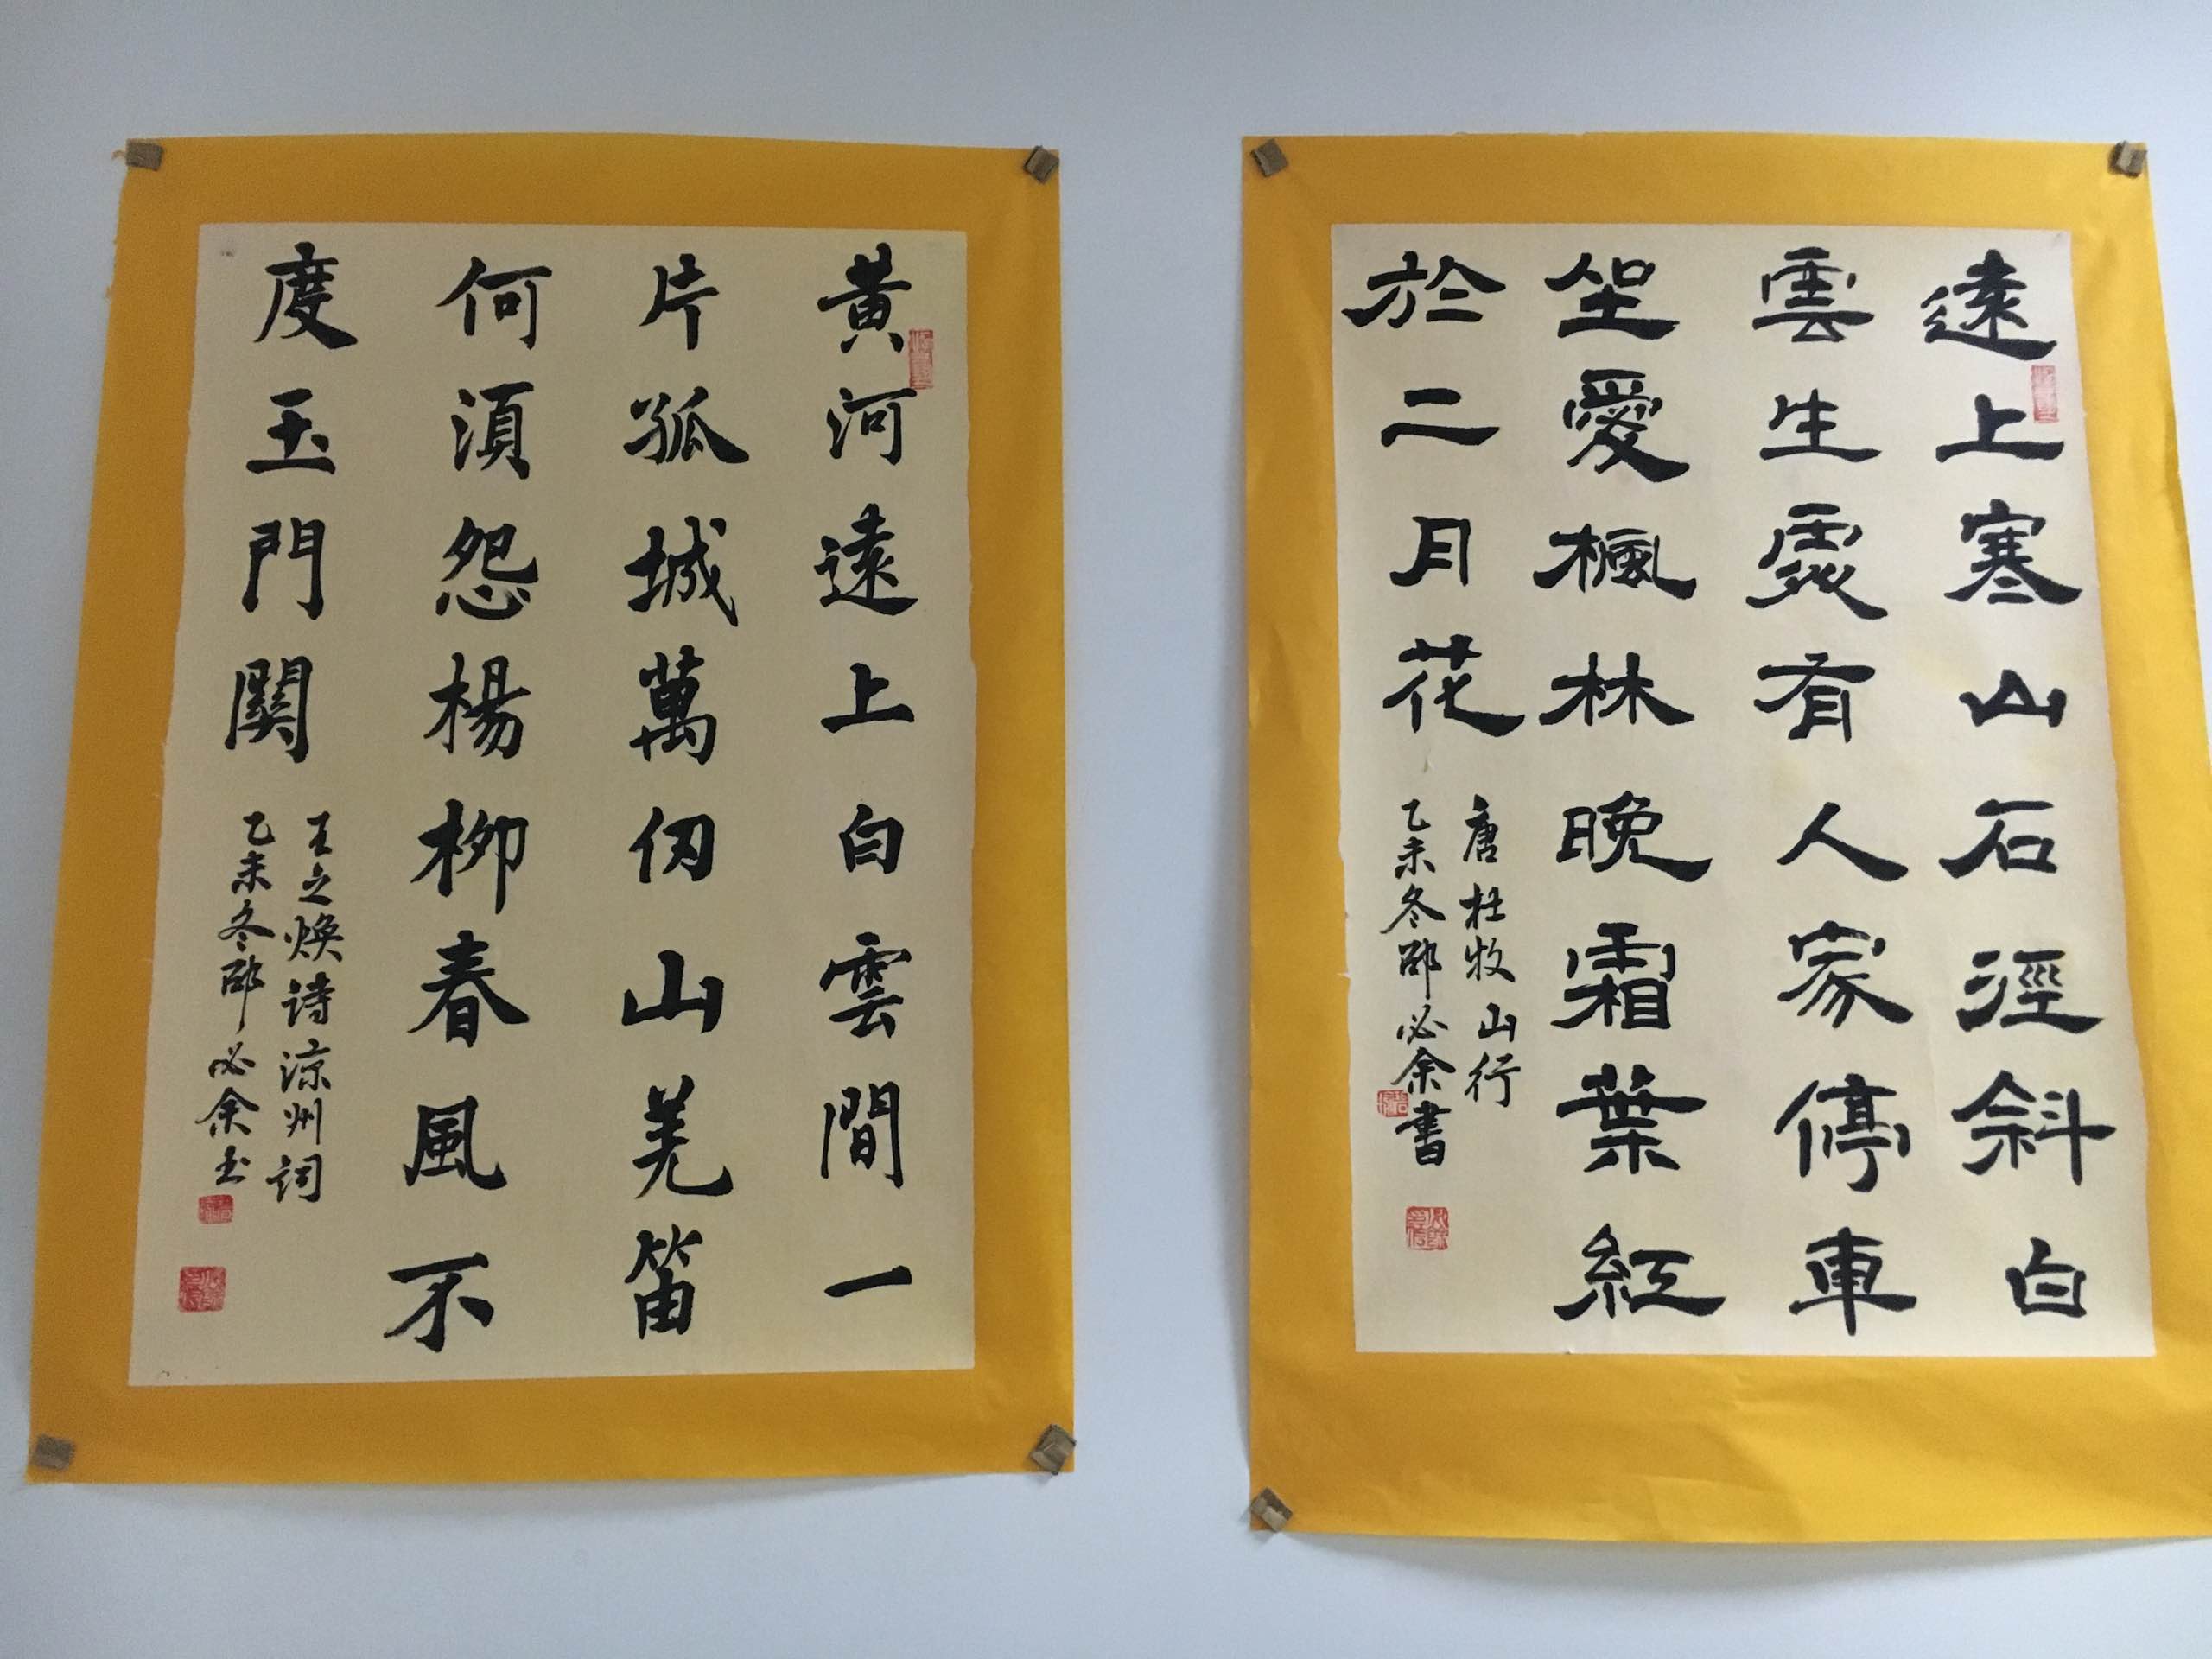 遠上寒山石涇斜白
雲生處有人家停車
坐愛楓林晚霜葉紅
於二月花
唐杜牧山行
乙未冬邵必余書
黃河遠上白雲間一
片孤城萬仞山羌笛
何須怨楊柳春風不
度玉門關
王之煥詩涼州詞
乙未冬邵必余书